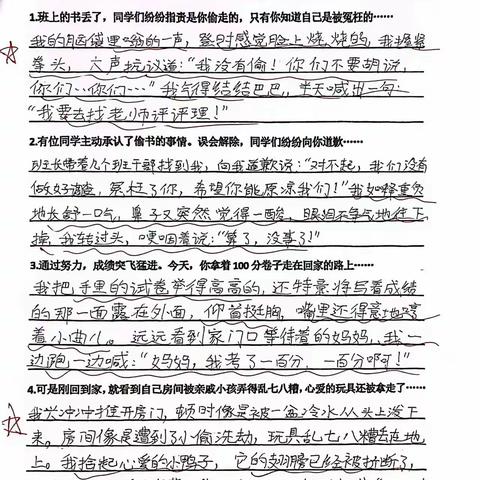 1.班上的书丢了，同学们纷纷指责是你偷走的，只有你知道自己是被冤枉的……
我的脑袋里嗡的一声，登时感觉脸上烧烧的，我握紧
拳头，大声抗议道："我没有偷！你们不要胡说，
你们…你们…"我气得结结巴巴，半天喊出一句：
"我要去找老师评评理！"
2.有位同学主动承认了偷书的事情。误会解除，同学们纷纷向你道歉……
班长带着几个班干部找到我，向我道歉说："对不起，我们没有
做好调查，冤枉了你，希望你能原谅我们！"我如释重负
地长舒一口气，鼻子又突然觉得一酸，眼泪不争气地往下
掉，我转过头，哽咽着说："算了，没事了！"
3.通过努力，成绩突飞猛进。今天，你拿着100分卷子走在回家的路上……
我把手里的试卷举得高高的，还特意将写着成绩
的那一面露在外面，仰首挺胸，嘴里还得意地哼
着小曲儿。远远看到家门口等待着的妈妈，我一
边跑一边喊："妈妈，我考了一百分，一百分啊！"
4.可是刚回到家，就看到自己房间被亲戚小孩弄得乱七八糟，心爱的玩具还被拿走了……
我兴冲冲推开房门，顿时像是被一盆冷水从头上泼下
来，房间像是遭到了小偷洗劫，玩具乱七八糟丢在地
上。我拾起心爱的小鸭子，它的翅膀已经被折断了，